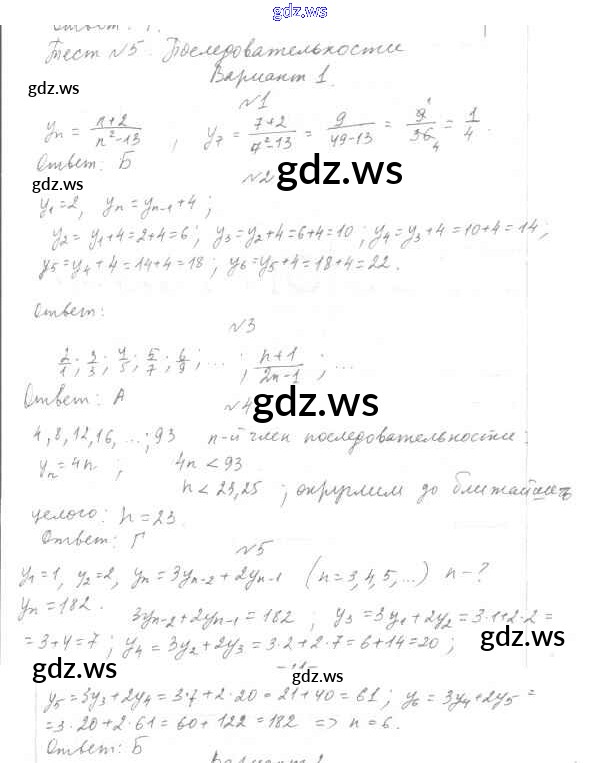 gdz.ws
Ответ: Г.
Тест №5. Последовательности
Вариант 1.
gdz.ws
№1
yn = n+2/n²-13 , y7 = 7+2/7²-13 = 9/49-13 = 9/36 = 1/4.
Ответ: Б
gdz.ws
gdz.ws
№2
y1=2, yn = yn-1+4;
y2 = y1+4=2+4=6; y3=y2+4=6+4=10; y4=y3+4=10+4=14;
y5=y4+4=14+4=18; y6=y5+4=18+4=22.
Ответ:
№3
2/1; 3/3; 4/5; 5/7; 6/9; ...; n+1/2n-1; ...
Ответ: А
gdz.ws
№4
4,8,12,16, ...; 93 n-й член последовательности:
yn=4n; 4n<93
n<23,25; округлим до ближайшего
целого: n=23.
Ответ: Г
№5
y1=1, y2=2, yn=3yn-2+2yn-1 (n=3,4,5,...) n-?
yn=182. 3yn-2+2yn-1=182; y3=3y1+2y2=3·1+2·2=
=3+4=7; y4=3y2+2y3=3·2+2·7=6+14=20;
gdz.ws
gdz.ws
y5=3y3+2y4=3·7+2·20=21+40=61; y6=3y4+2y5=
=3·20+2·61=60+122=182 => n=6.
Ответ: Б
gdz.ws
gdz.ws